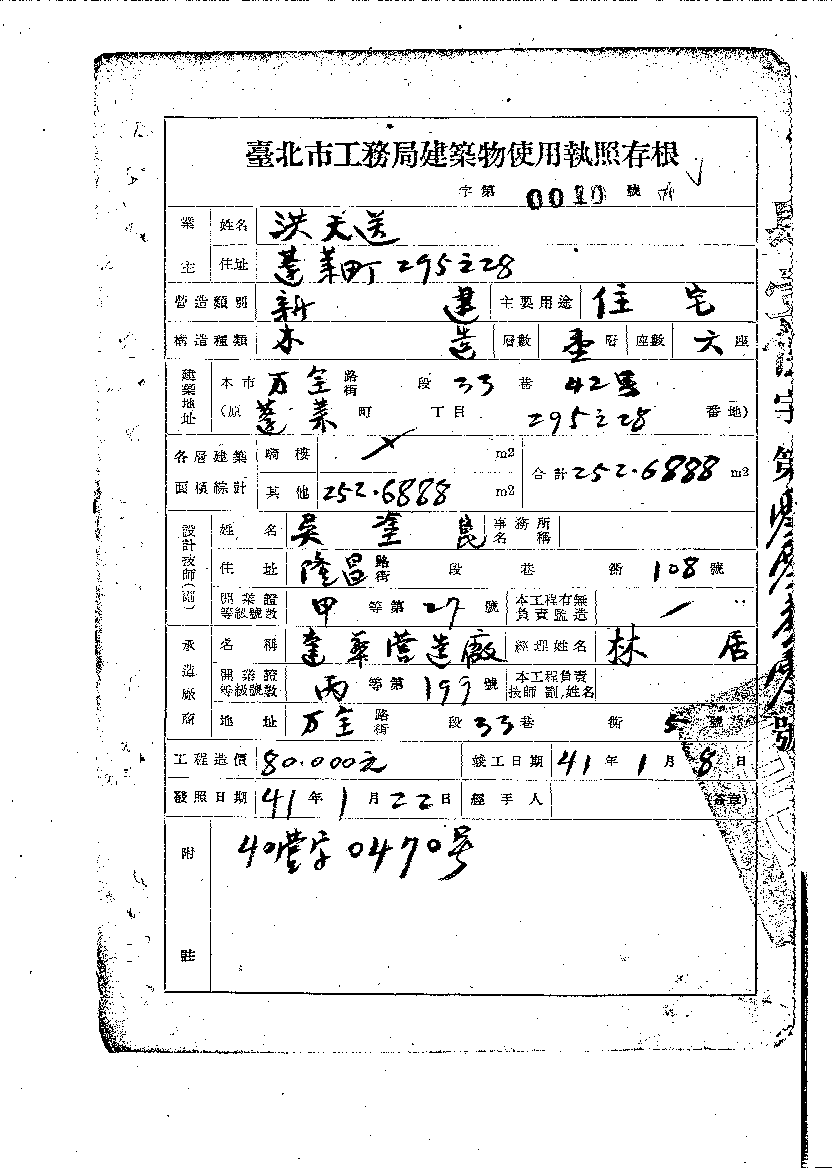 臺北市工務局建築物使用執照存根
字第 0010 號
業主 姓名 洪天送
住址 蓬萊町295之28
營造類別 新建 主要用途 住宅
構造種類 木造 層數 壹層 座數 六座
建築地址 本市万全路街 段33巷42号
(原蓬萊町 丁目 295之28 番地)
各層建築面積綜計 騎樓 m2 合計252.6888m2
其他 252.6888 m2
設計技師(副) 姓名 吳塗 事務所名稱
住址 隆昌路街 段 巷 衖 108號
開業證等級號數 甲等第27號 本工程有無負責監造
承造廠商 名稱 蓬華营造廠 經理姓名 林居
開業證等級號數 丙等第199號 本工程負責技師副,姓名
地址 万全路街 段33巷 衖 5號
工程造價 80.000元 竣工日期 41年1月8日
發照日期 41年1月22日 經手人 (簽章)
附註 40營字0470号
字第 號